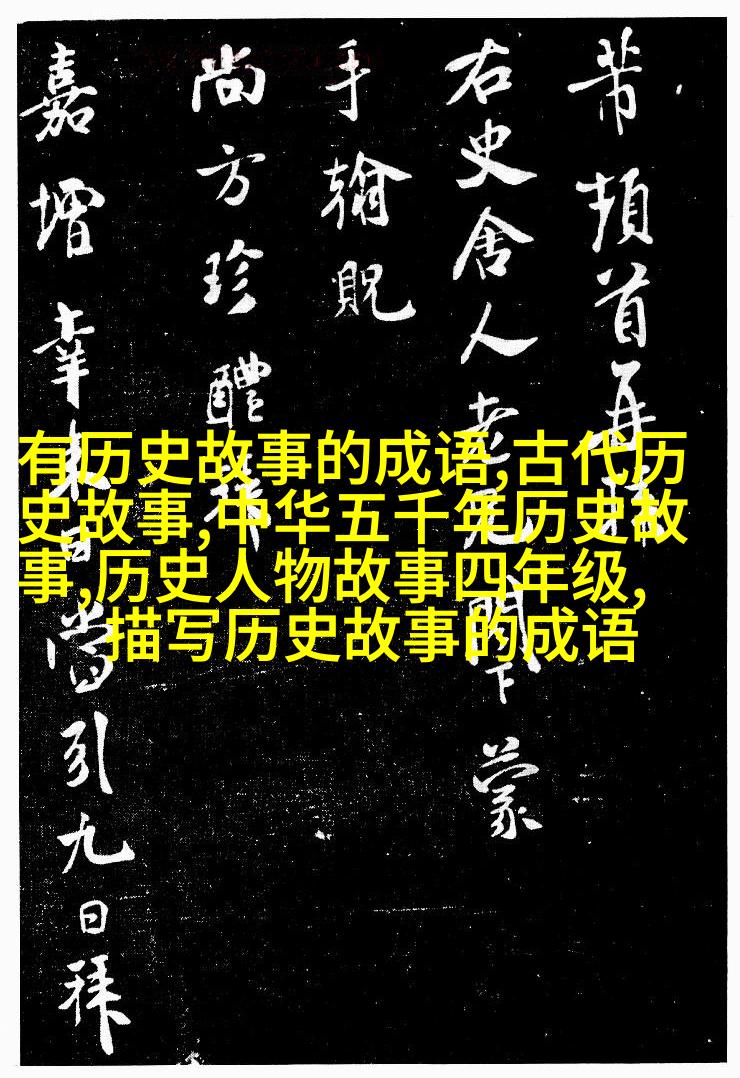 芾頓首再拜
右史舍人老兄閤下蒙
手翰貺
尚方珍醴拜
嘉增幸來日當引九日拜
有历史故事的成语,古代历
史故事,中华五千年历史故
事,历史人物故事四年级,
描写历史故事的成语